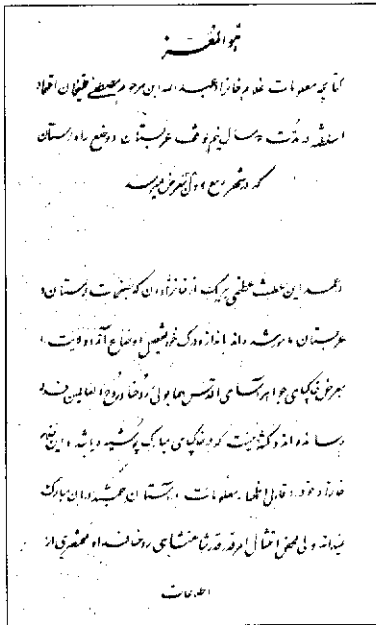 هو المعز
کتابچه معلومات غلام خانه‌زاد عبدالله ابن مرحوم مصطفی قلیخان اعتماد
السلطنه در مدت سال نیم توقف عربستان و وضع راه لرستان
که در شهر ربیع الاول بعرض میرسد
در عهد این سلطنت عظمی هر یک از خانه‌زادان که بسمت لرستان و
عربستان مأمور شده‌اند باندازه درک خود تفصیل اوضاع آن ولایت را
بعرض خاکپای جواهر آسای اقدس همایونی روحنا و روح العالمین فداه
رسانده‌اند و نکته نیست که در خاکپای مبارک پوشیده باشد و این غلام
خانه‌زاد خود را قابل اظهار معلومات در آستان مبارک
نمیداند ولی محض امتثال امر قدر قدر شاهنشاهی روحنا فداه مختصری از
اطلاعات